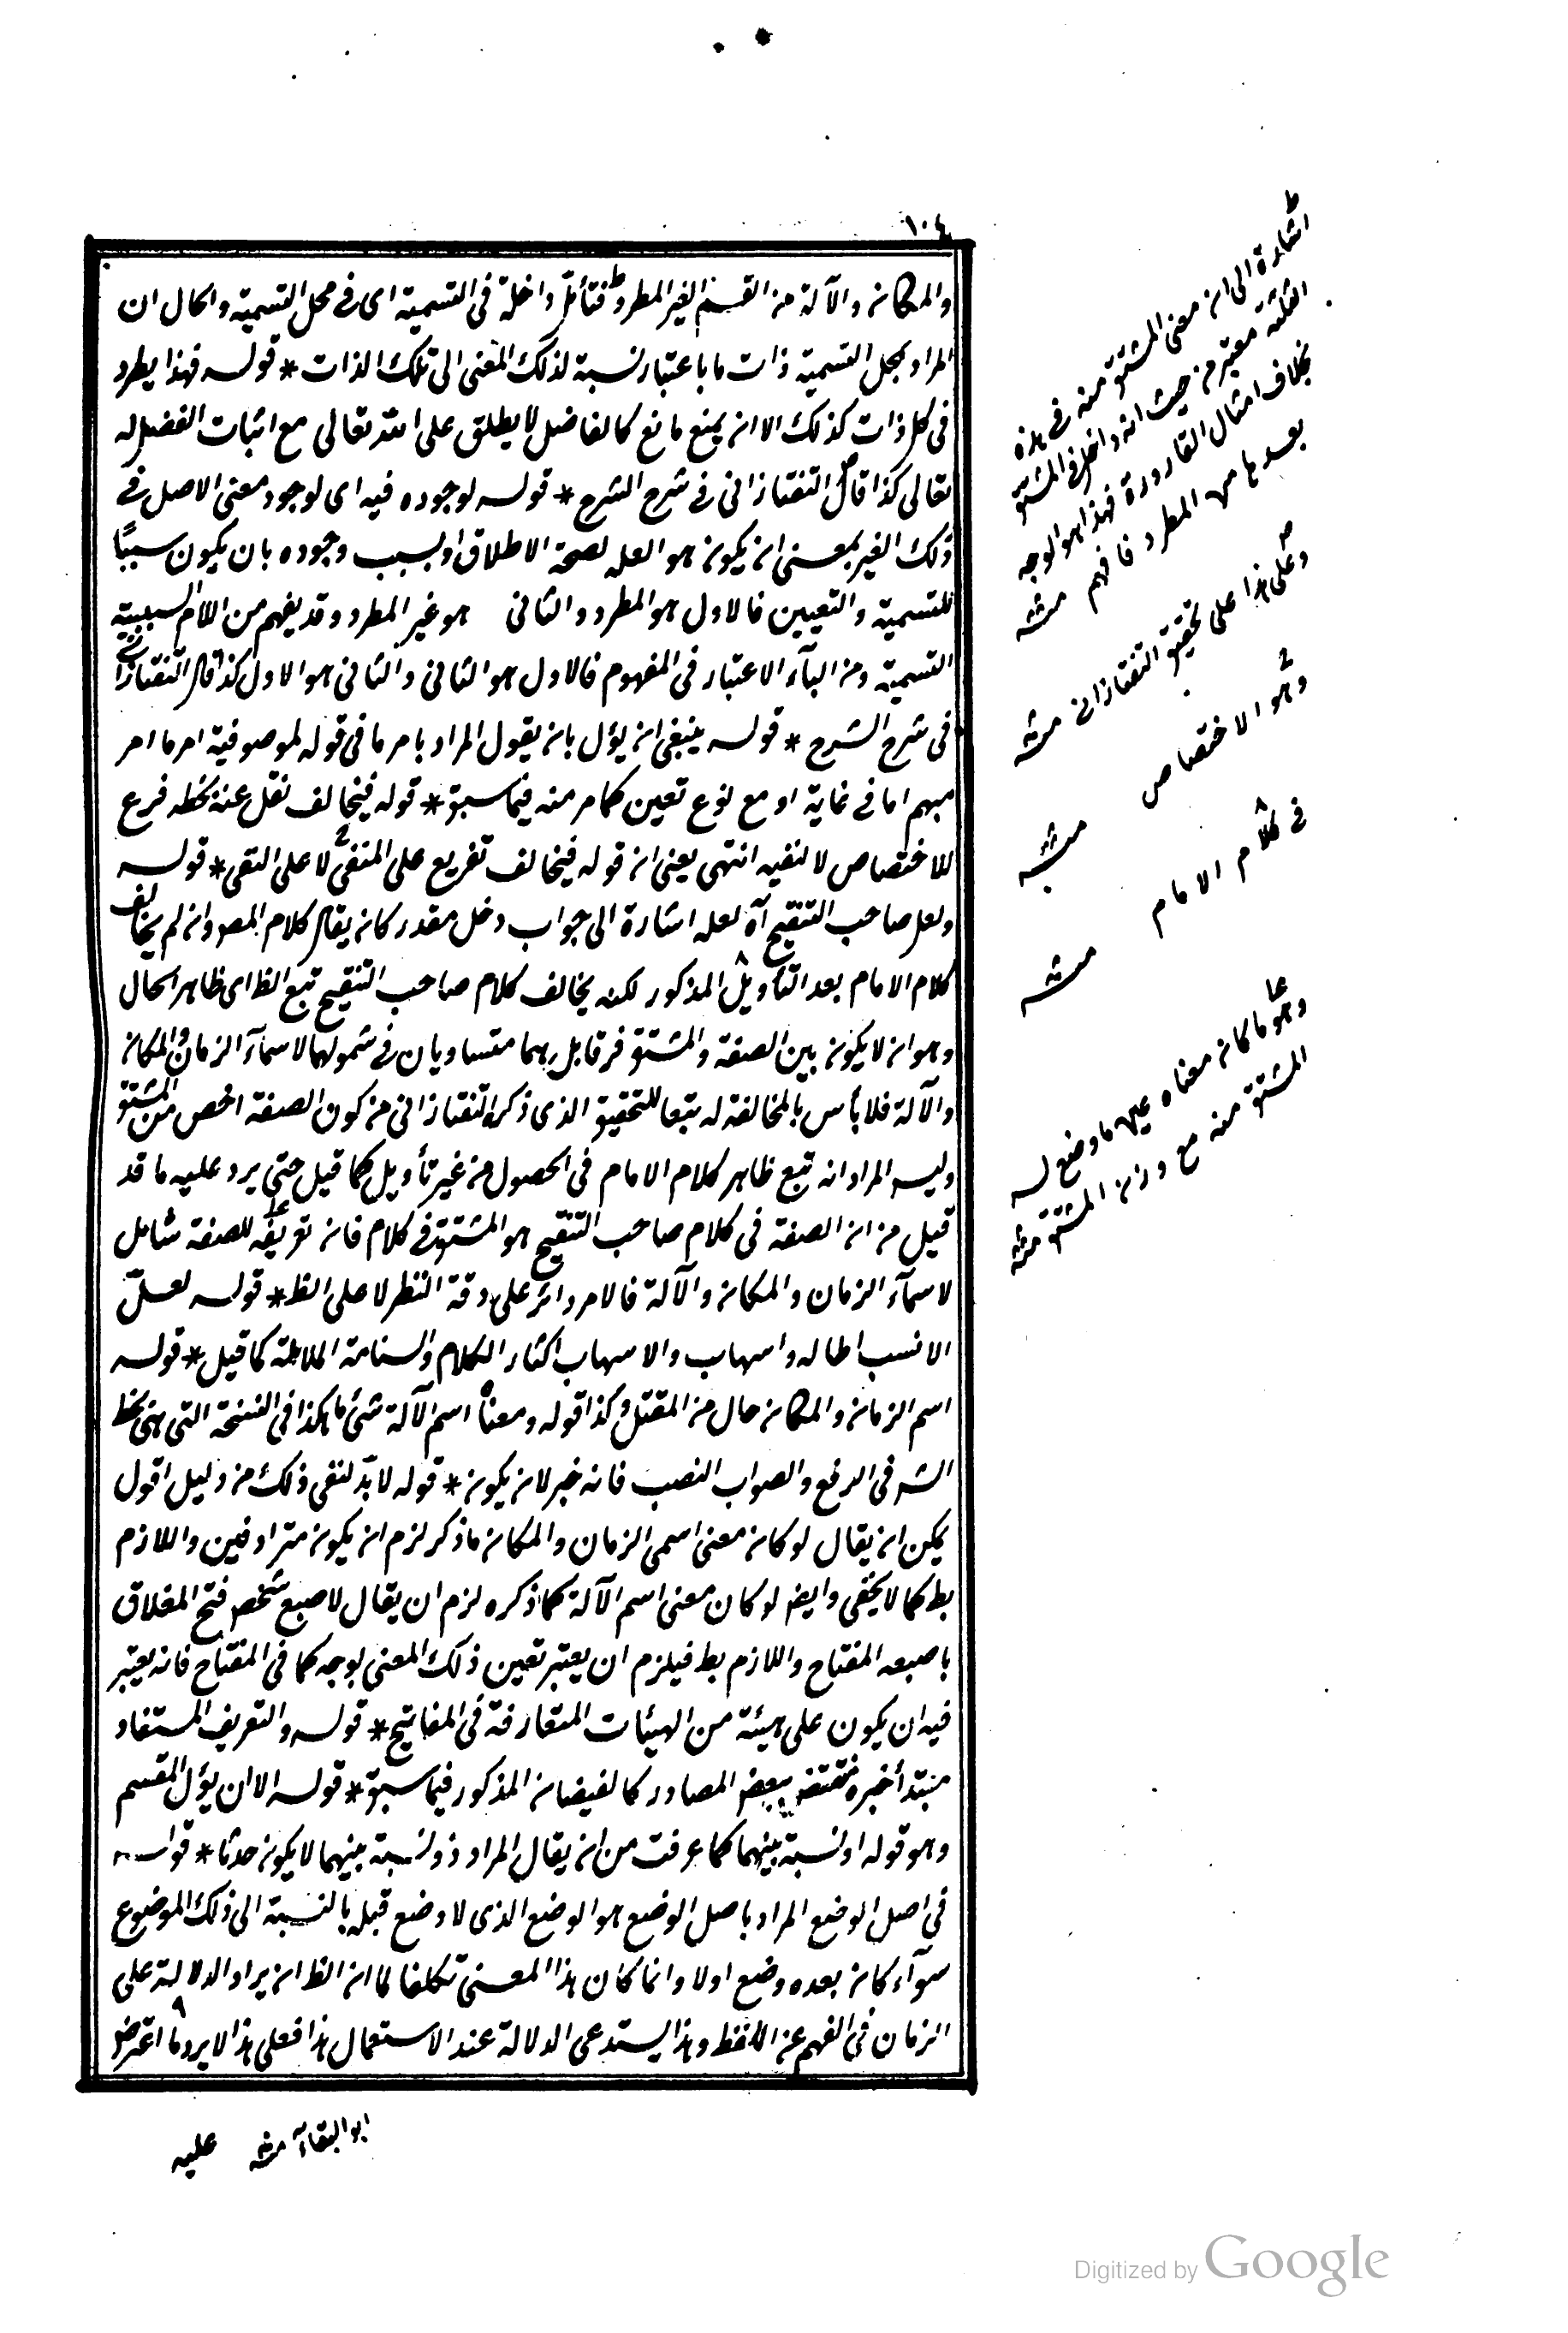 ١٠٤
والمكان والآلة من القسم الغير المطرد فتأمل داخلة فى التسمية اى فى محل التسمية والحال ان
المراد بمحل التسمية ذات ما باعتبار نسبة لذلك المعنى الى تلك الذات * قوله فهذا يطرد
فى كل ذات كذلك الا ان يمنع مانع كالفاضل لا يطلق على الله تعالى مع اثبات الفضل له
تعالى كذا قال التفتازانى فى شرح الشرح * قوله لوجوده فيه اى لوجود معنى الاصل فى
ذلك الغير بمعنى ان يكون هو العله لصحة الاطلاق او بسبب وجوده بان يكون سببًا
للتسمية والتعيين فالاول هو المطرد والثانى هو غير المطرد وقد يفهم من اللام السببية
التسمية ومن البآء الاعتبار فى المفهوم فالاول هو الثانى والثانى هو الاول كذا قال التفتازانى
فى شرح الشرح * قوله ينبغى ان يؤل بان يقول المراد بامر ما فى قوله لموصوفية امر ما امر
مبهم اما فى غاية او مع نوع تعين كما مر منه فيما سبق * قوله فيخالف نقل عنه بخطه فرع
للاختصاص لا لنفيه انتهى يعنى ان قوله فيخالف تفريع على المنفى لا على النفى * قوله
ولعل صاحب التنقيح آه لعله اشارة الى جواب دخل مقدر كانه يقال كلام المصـ وان لم يخالف
كلام الامام بعد التأويل المذكور لكنه يخالف كلام صاحب التنقيح تبع الظ اى ظاهر الحال
وهو ان لا يكون بين الصفة والمشتق فرقا بل هما متساويان فى شمولهما لاسمآء الزمان والمكان
والآلة فلا بأس بالمخالفة له تبعا للتحقيق الذى ذكره التفتازانى من كون الصفة اخص من المشتق
وليس المراد انه تبع ظاهر كلام الامام فى الحصول من غير تأويل كما قيل حتى يرد عليه ما قد
قيل من ان الصفة فى كلام صاحب التنقيح هو المشتق فى كلام فان تعريفه للصفة شامل
لاسمآء الزمان والمكان والآلة فالامر دائر على دقة النظر لا على الظ * قوله لعلّ
الانسب اطاله واسهاب والاسهاب اكثار الكلام والسنامة الملالة كما قيل * قوله
اسم الزمان والمكان حال من المقتل وكذا قوله ومعناه اسم الآلة شئ ما هكذا فى النسخة التى هى بخط
الشـ فى الرفع والصواب النصب فانه خبر لان يكون * قوله لا بدّ لنفى ذلك من دليل اقول
يمكن ان يقال لو كان معنى اسمى الزمان والمكان ما ذكر لزم ان يكون مترادفين واللازم
بط كما لا يخفى وايضـ لو كان معنى اسم الآلة كما ذكره لزم ان يقال لاصبع شخص فتح المغلاق
باصبعه المفتاح واللازم بط فيلزم ان يعتبر تعين ذلك المعنى بوجه كما فى المفتاح فانه يعتبر
فيه ان يكون على هيئة من الهيئات المتعارفة فى المفاتيح * قوله والتعريف المستفاد
مبتدأ خبره منتقض ببعض المصادر كالفيضان المذكور فيما سبق * قوله الا ان يؤل المقسم
وهو قوله او نسبة بينهما كما عرفت من ان يقال المراد ذو نسبة بينهما لا يكون حدثا * قوله
فى اصل الوضع المراد باصل الوضع هو الوضع الذى لا وضع قبله بالنسبة الى ذلك الموضوع
سوآء كان بعده وضع اولا وانما كان هذا المعنى تكلفا لما ان الظ ان يراد الدلالة على
الزمان فى الفهم عن اللفظ وهذا يستدعى الدلالة عند الاستعمال هذا فعلى هذا لا يرد ما اعترض
ابو البقاء منه
عليه
اشارة الى ان معنى المشتق منه فى هذه
الثلثة معتبر من حيث انه داخل فى المشتق
بخلاف امثال القارورة فهذا هو الوجه
بعدها من المطرد فافهم منه
وعلى هذا على تحقيق التفتازانى منه
وهو الاختصاص منه
فى كلام الامام منه
وهو ما كان معناه عين ما وضع له
المشتق منه مع وزن المشتق منه
Digitized by Google